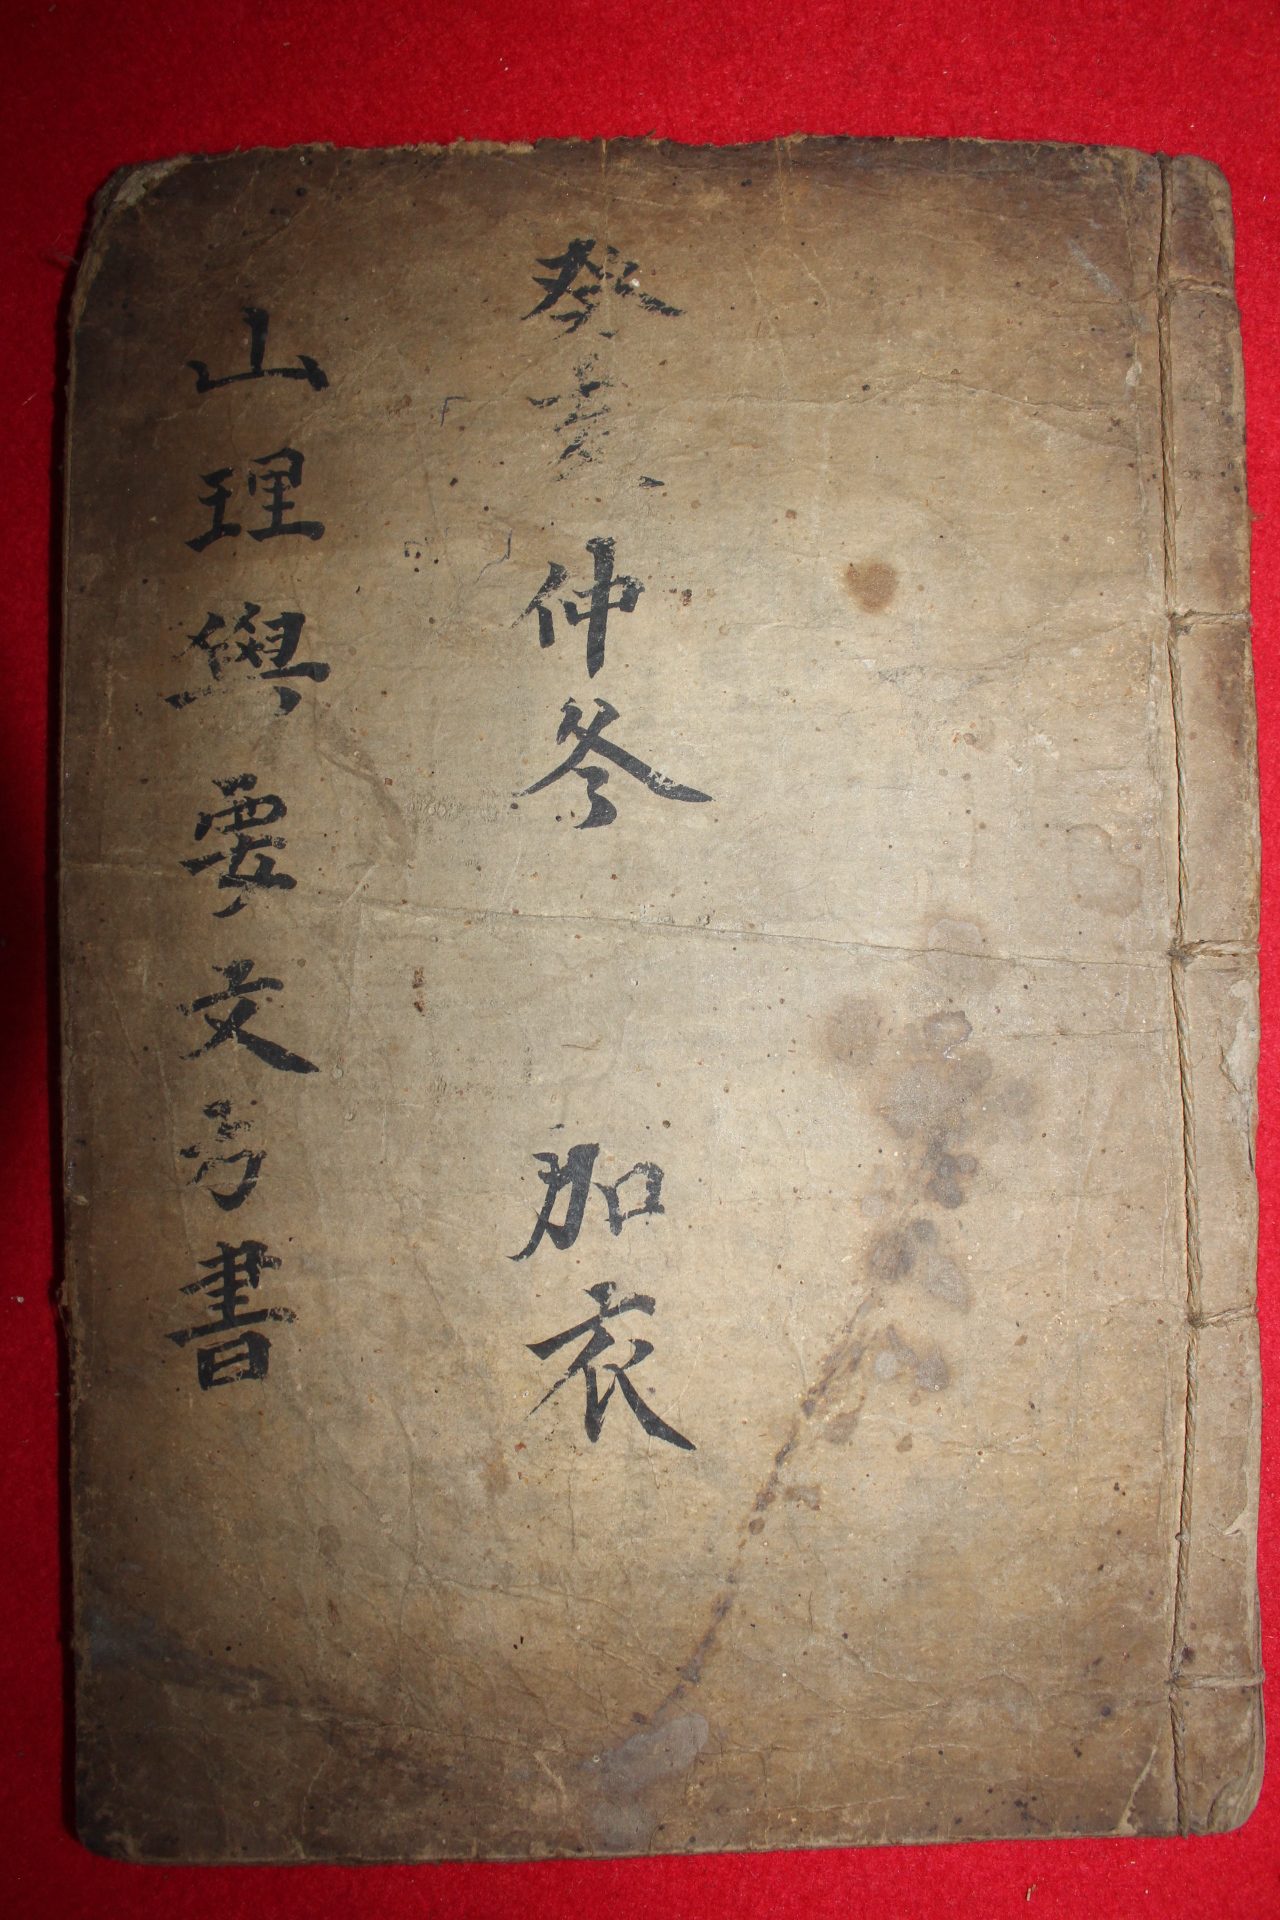 癸亥仲冬 加衣
山理與要文方書